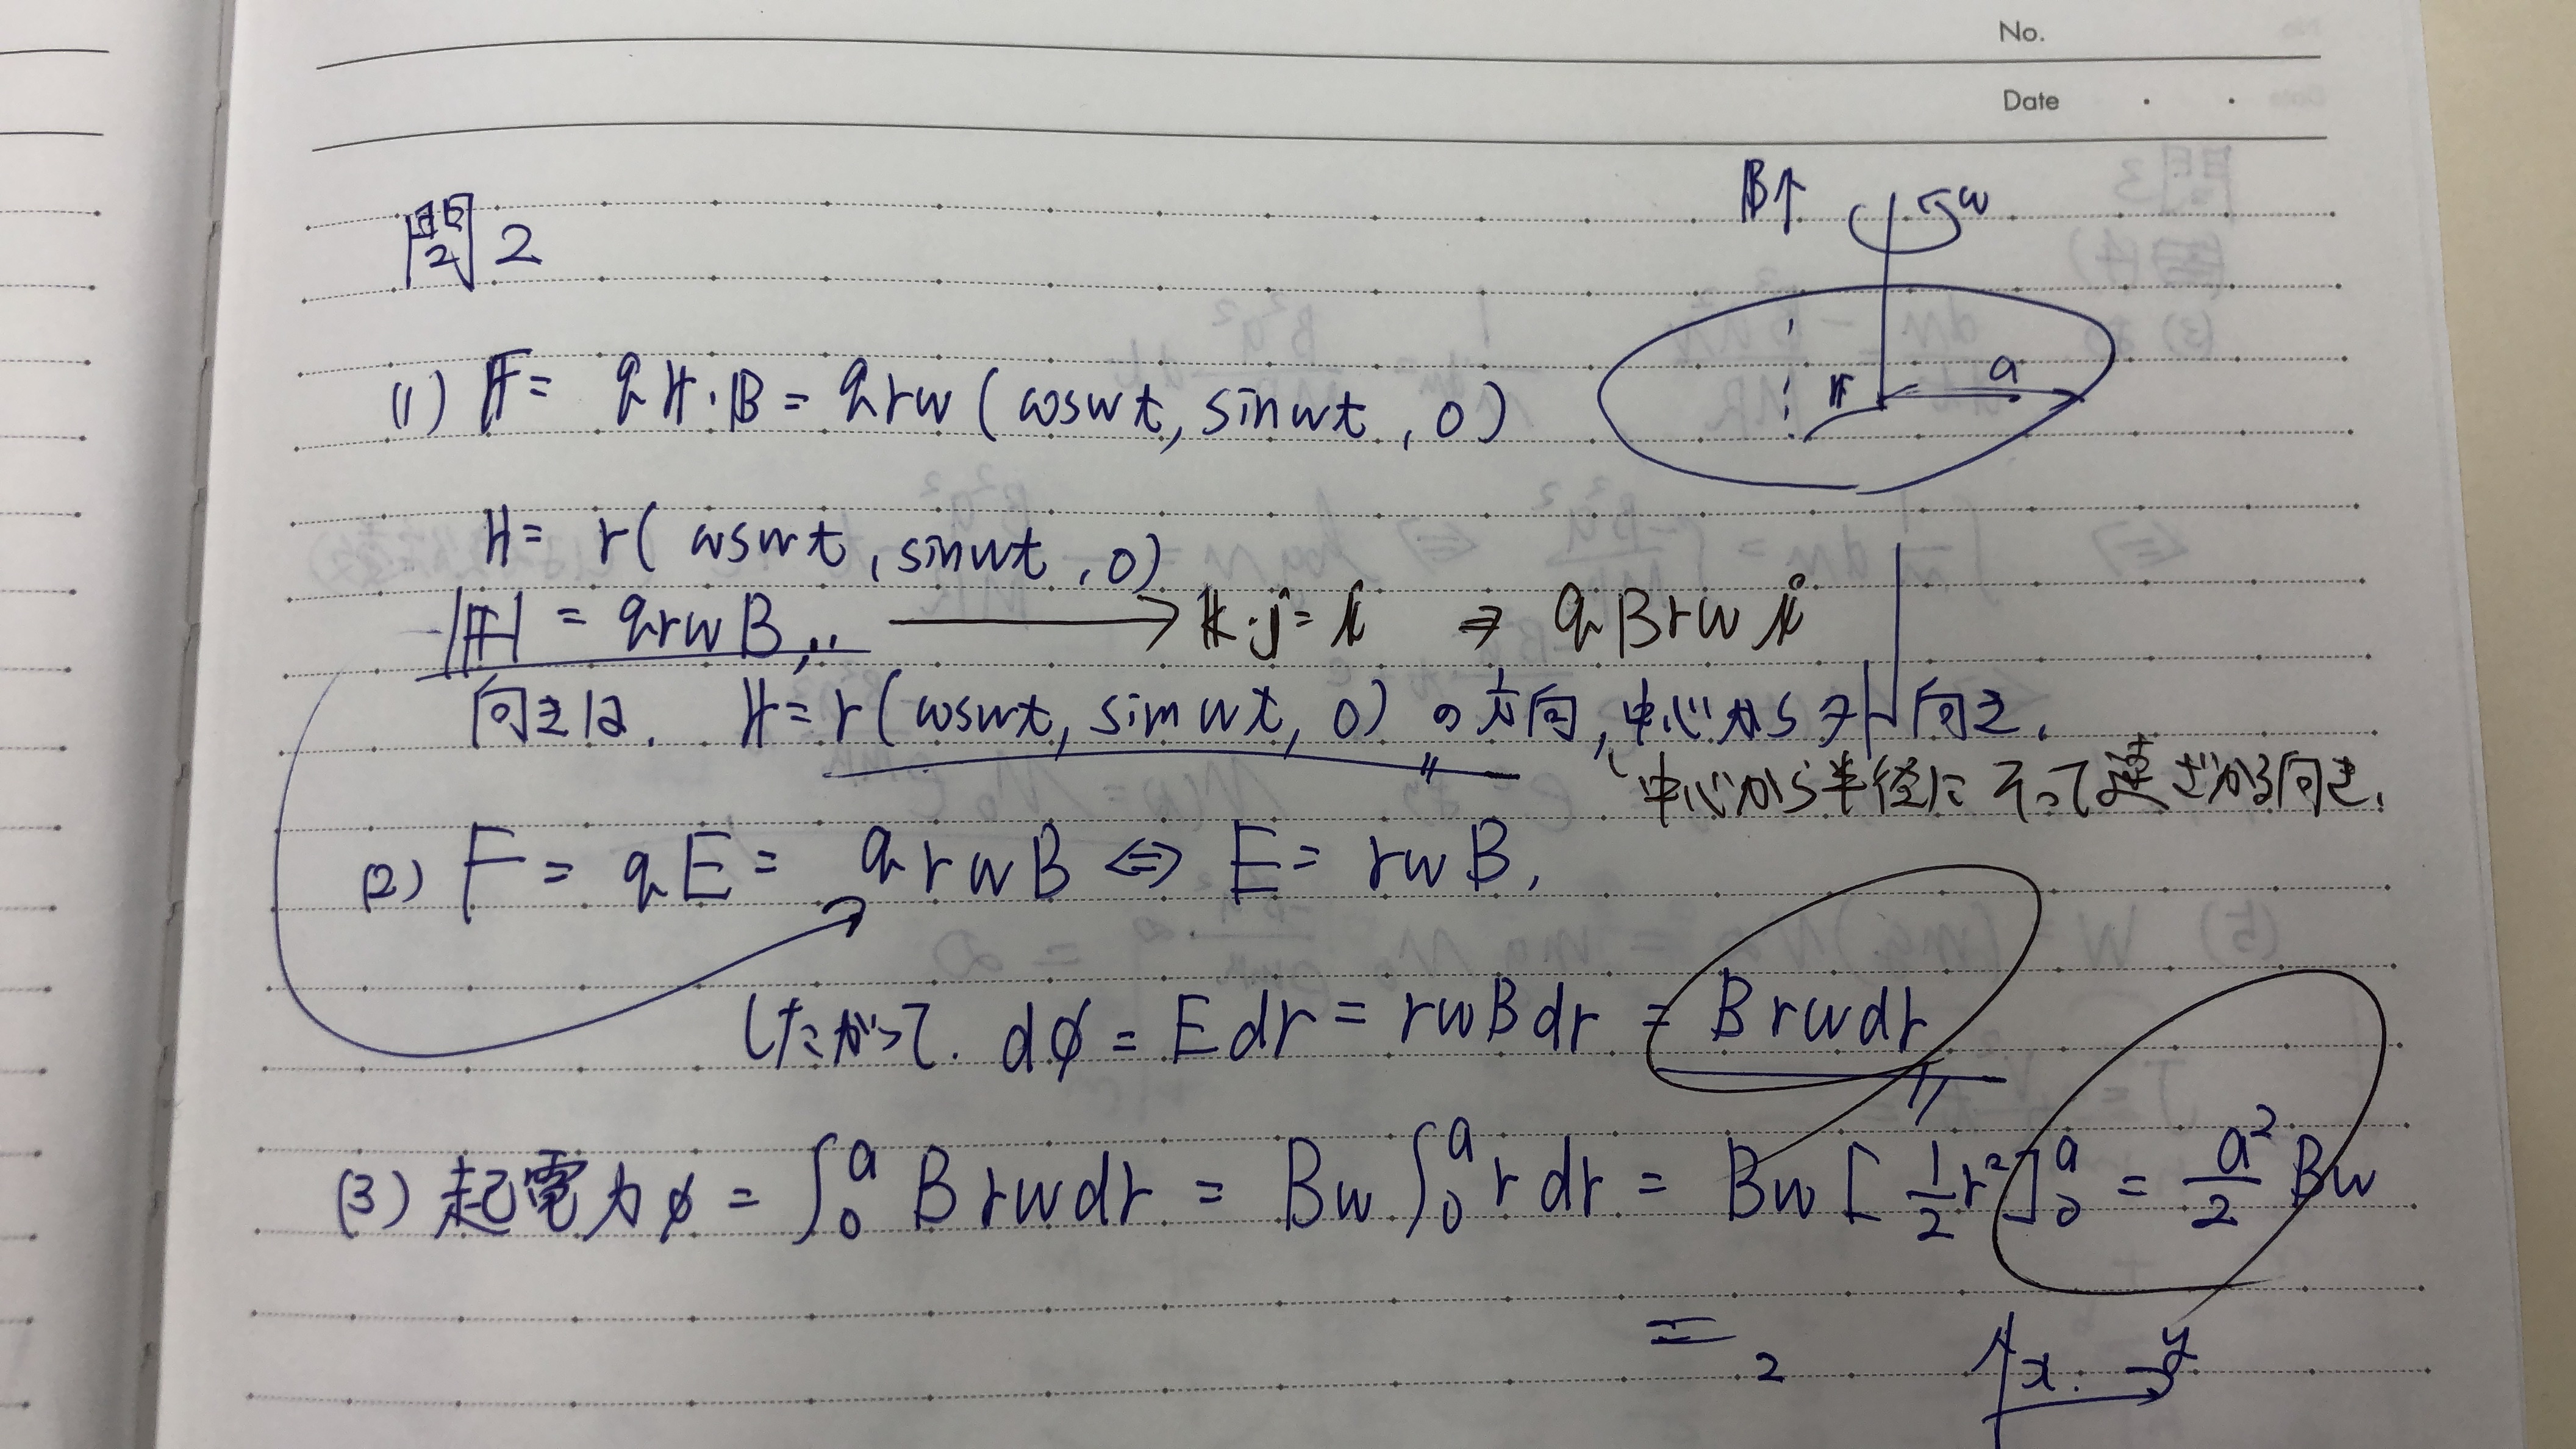 No.
Date
B↑ ω
a
r
問2
(1) F = q r・B = q r ω ( cosωt, sinωt, 0 )
r = r ( cosωt, sinωt, 0 )
|F| = q r ω B 〃 → k・j = i ⇒ q B r ω i
向きは、 r = r ( cosωt, sinωt, 0 ) の方向, 中心から外向き.
中心から半径にそって遠ざかる向き.
(2) F = q E = q r ω B ⇔ E = r ω B,
したがって. dφ = E dr = r ω B dr = B r ω dr
(3) 起電力 φ = ∫₀ᵃ B r ω dr = B ω ∫₀ᵃ r dr = B ω [ 1/2 r² ]₀ᵃ = a²/2 B ω
= 2
x. y